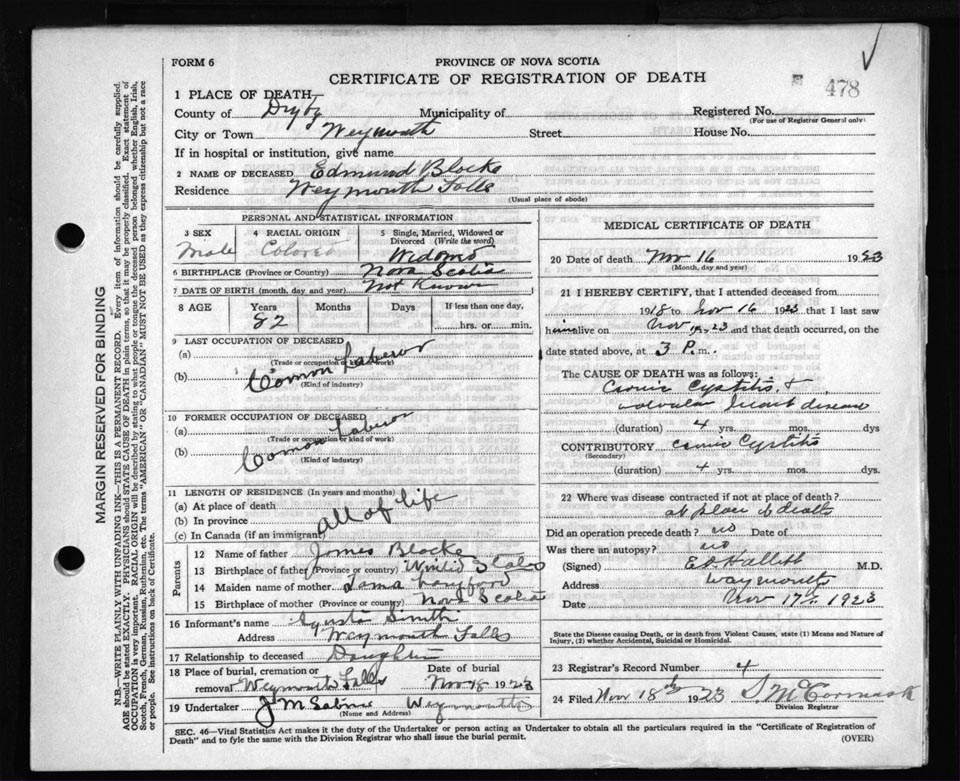 FORM 6
PROVINCE OF NOVA SCOTIA
CERTIFICATE OF REGISTRATION OF DEATH
478
1 PLACE OF DEATH—
County of Digby Municipality of Registered No.
(For use of Registrar General only)
City or Town Weymouth Street: House No.
If in hospital or institution, give name
2 NAME OF DECEASED Edmund Blocke
Residence Weymouth Falls
(Usual place of abode)
PERSONAL AND STATISTICAL INFORMATION
3 SEX 4 RACIAL ORIGIN 5 Single, Married, Widowed or
Divorced (Write the word)
Male Colored Widowed
6 BIRTHPLACE (Province or Country) Nova Scotia
7 DATE OF BIRTH (month, day and year) Not Known
8 AGE Years Months Days If less than one day,
82 hrs. or min.
9 LAST OCCUPATION OF DECEASED
(a)
(Trade or occupation or kind of work)
(b) Comon Laberor
(Kind of industry)
10 FORMER OCCUPATION OF DECEASED
(a)
(Trade or occupation or kind of work)
(b) Comon Labiror
(Kind of industry)
11 LENGTH OF RESIDENCE (In years and months)
(a) At place of death
(b) In province all of life
(c) In Canada (if an immigrant)
Parents
12 Name of father James Blocke
13 Birthplace of father (Province or country) United States
14 Maiden name of mother Langford
15 Birthplace of mother (Province or country) Nova Scotia
16 Informant's name Smith
Address Weymouth Falls
17 Relationship to deceased Daughter
18 Place of burial, cremation or Date of burial
removal Weymouth Falls Nov 18 1923
19 Undertaker J M Sabine Weymouth
(Name and Address)
MEDICAL CERTIFICATE OF DEATH
20 Date of death Nov 16 1923
(Month, day and year)
21 I HEREBY CERTIFY, that I attended deceased from
1918 to Nov 16 1923 that I last saw
him alive on Nov 1923 and that death occurred, on
date stated above, at 3 P. m.
The CAUSE OF DEATH was as follows:
Cronic Cystitis, &
valvular heart disease
(duration) 4 yrs. mos. dys
CONTRIBUTORY cronic Cystitis
(Secondary)
(duration) 4 yrs. mos. dys.
22 Where was disease contracted if not at place of death?
at place of death
Did an operation precede death? no Date of
Was there an autopsy? no
(Signed) Hallett M.D.
Address Weymouth
Date Nov 17th 1923
State the Disease causing Death, or in death from Violent Causes, state (1) Means and Nature of
Injury, (2) whether Accidental, Suicidal or Homicidal.
23 Registrar's Record Number 4
24 Filed Nov 18th 1923 S. McCormack
Division Registrar
SEC. 46—Vital Statistics Act makes it the duty of the Undertaker or person acting as Undertaker to obtain all the particulars required in the "Certificate of Registration of
Death" and to fyle the same with the Division Registrar who shall issue the burial permit.
(OVER)
MARGIN RESERVED FOR BINDING
N.B.—WRITE PLAINLY WITH UNFADING INK—THIS IS A PERMANENT RECORD. Every item of information should be carefully supplied.
AGE should be stated EXACTLY. PHYSICIANS should STATE CAUSE OF DEATH in plain terms, so that it may be properly classified. Exact statement of
OCCUPATION is very important. RACIAL ORIGIN will be described by stating to what people or tongue the deceased person belonged whether English, Irish,
Scotch, French, German, Russian, Ruthenian, etc. The terms "AMERICAN" or "CANADIAN" MUST NOT BE USED as they express citizenship but not a race
or people. See instructions on back of Certificate.